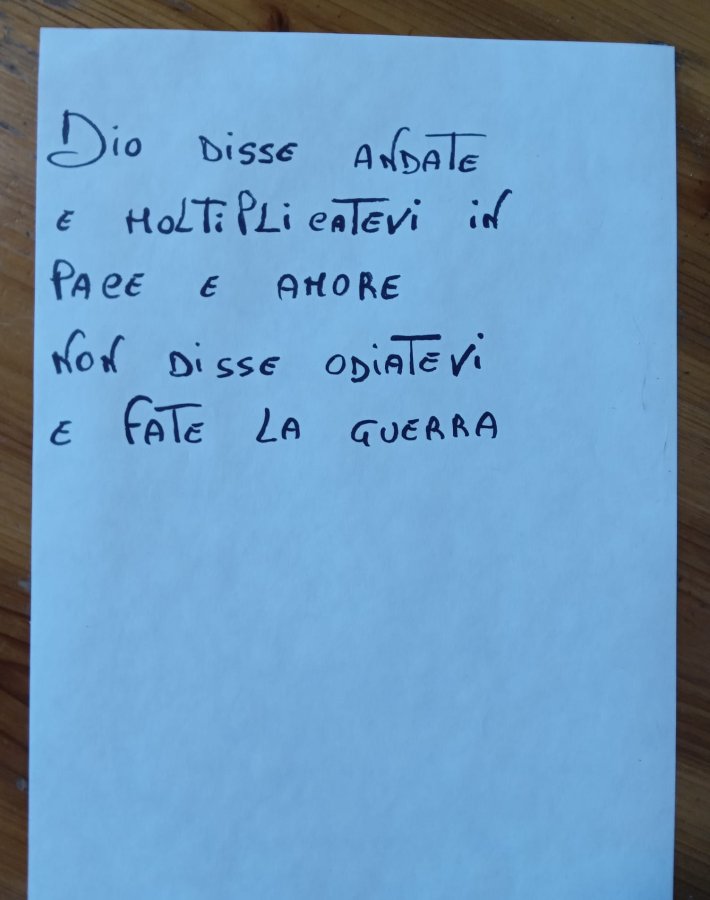 Dio DiSSE ANDATE
E MOLTiPLiCATEVi iN
PACE E AMORE
NON DiSSE ODiATEVi
E FATE LA GUERRA